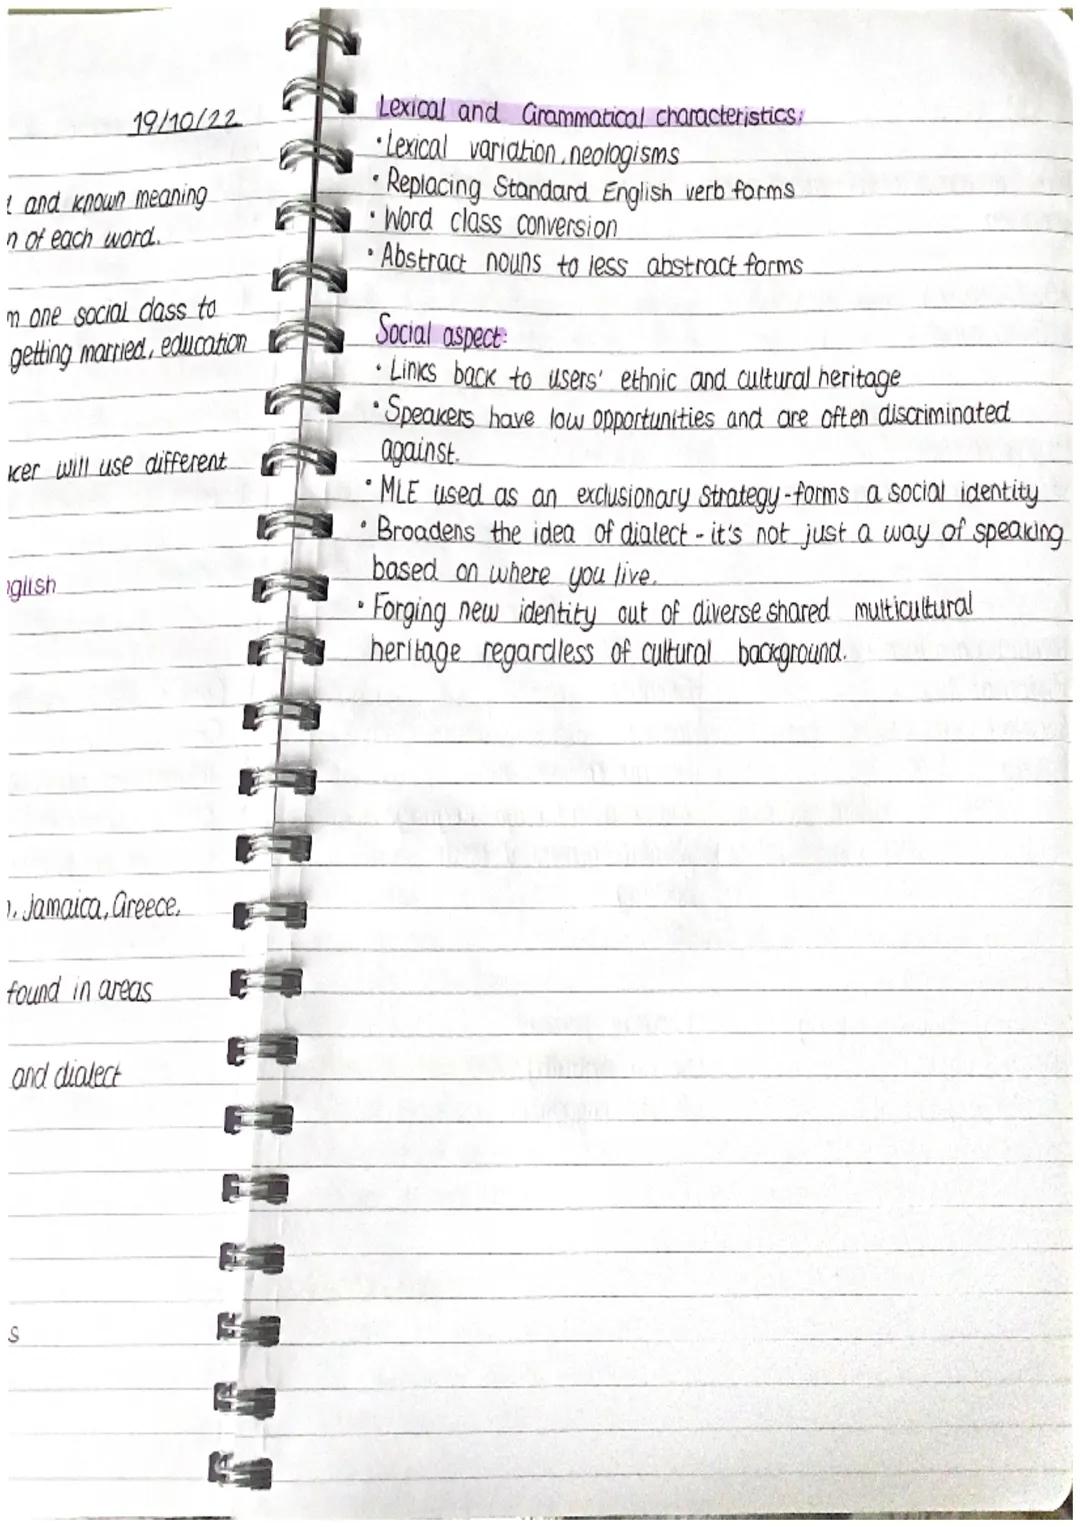 19/10/22
and known meaning
of each word.
one social class to
getting married, education
will use different
Jamaica, Greece.
found in areas
and dialect
s
Lexical and Grammatical characteristics:
• Lexical variation, neologisms
• Replacing Standard English verb forms
• Word class conversion
• Abstract nouns to less abstract forms
Social aspect:
• Links back to users' ethnic and cultural heritage
• Speakers have low opportunities and are often discriminated
against.
• MLE used as an exclusionary strategy - forms a social identity
• Broadens the idea of dialect - it's not just a way of speaking
based on where you live.
• Forging new identity out of diverse shared multicultural
heritage regardless of cultural background.